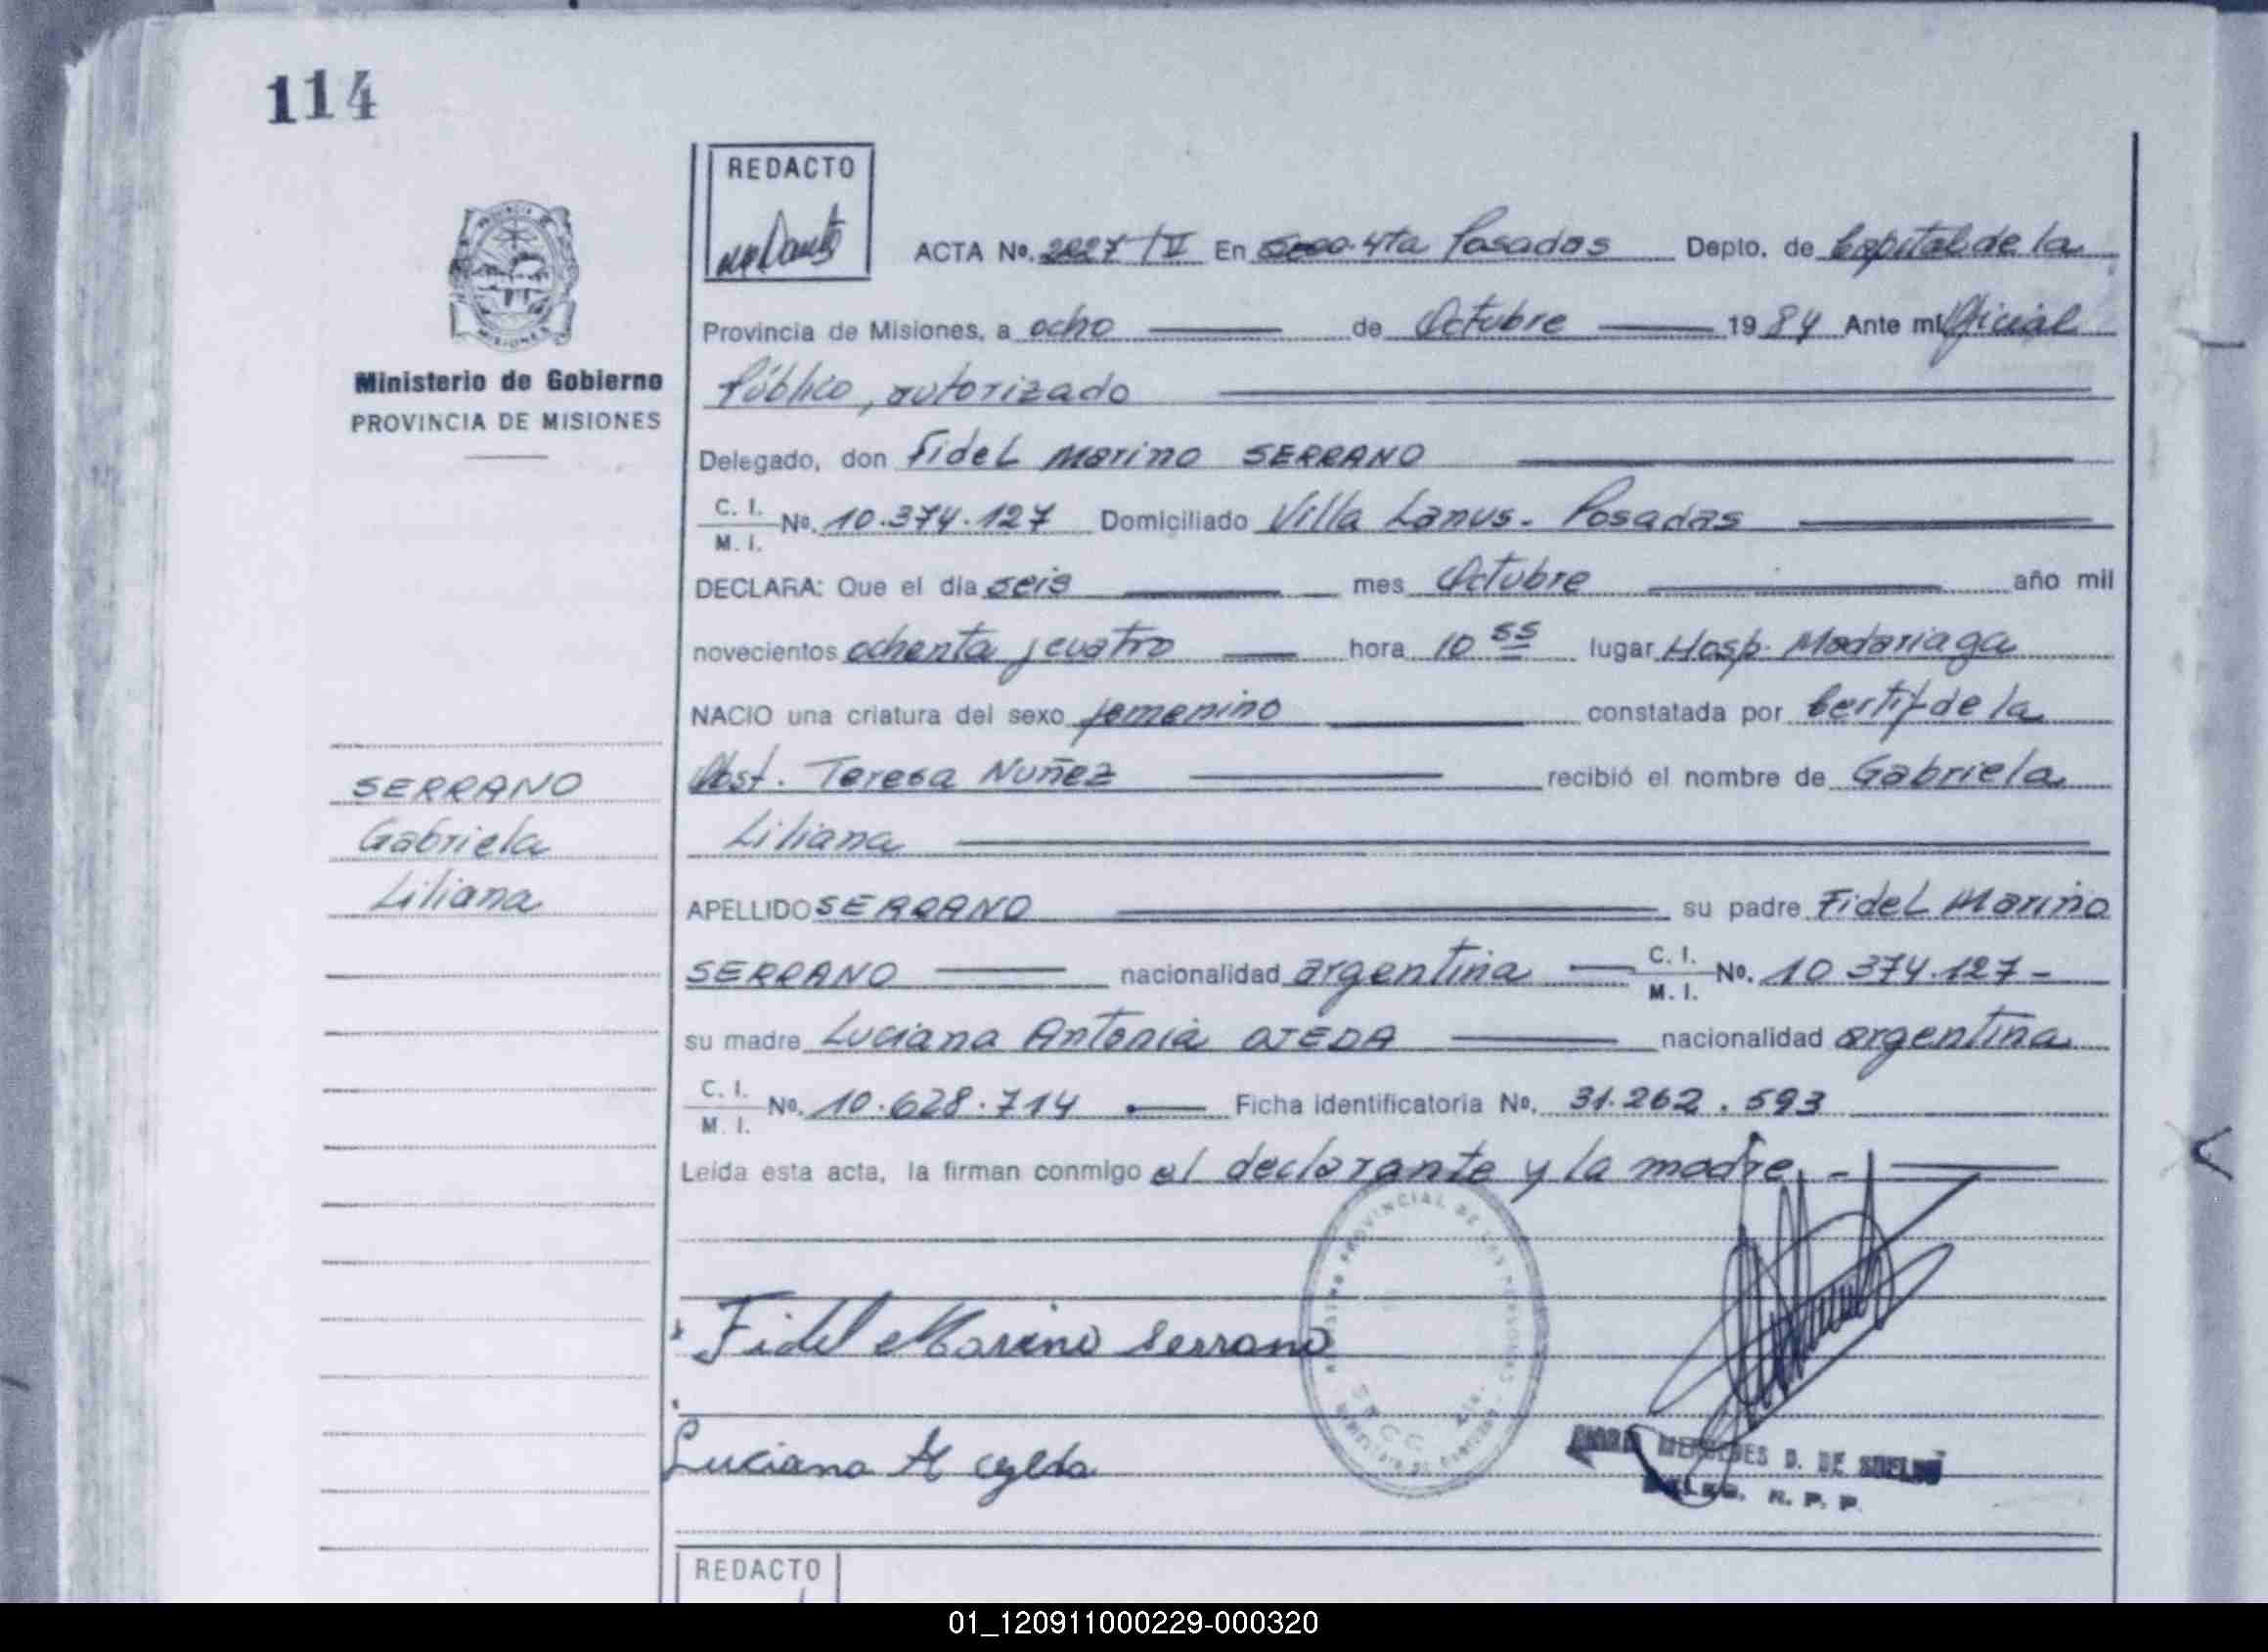 114
REDACTO
ACTA No. 2227/V En Secc. 4ta Posadas Depto. de Capital de la
Provincia de Misiones, a ocho de Octubre 1984 Ante mí Oficial
Público, autorizado
Ministerio de Gobierno
PROVINCIA DE MISIONES
Delegado, don Fidel Marino SERRANO
C. I. M. I. No. 10.374.127 Domiciliado Villa Lanus - Posadas
DECLARA: Que el día seis mes Octubre año mil
novecientos ochenta y cuatro hora 10 55 lugar Hosp. Madariaga
NACIO una criatura del sexo femenino constatada por Certif. de la
Obst. Teresa Nuñez recibió el nombre de Gabriela
Liliana
SERRANO
Gabriela
Liliana
APELLIDO SERRANO su padre Fidel Marino
SERRANO nacionalidad argentina C. I. M. I. No. 10.374.127-
su madre Luciana Antonia OJEDA nacionalidad argentina
C. I. M. I. No. 10.628.714 Ficha identificatoria No. 31.262.593
Leída esta acta, la firman conmigo el declarante y la madre.-
Fidel Marino Serrano
Luciana A ojeda
MERCEDES D. DE
R. P. P.
REDACTO
01_120911000229-000320